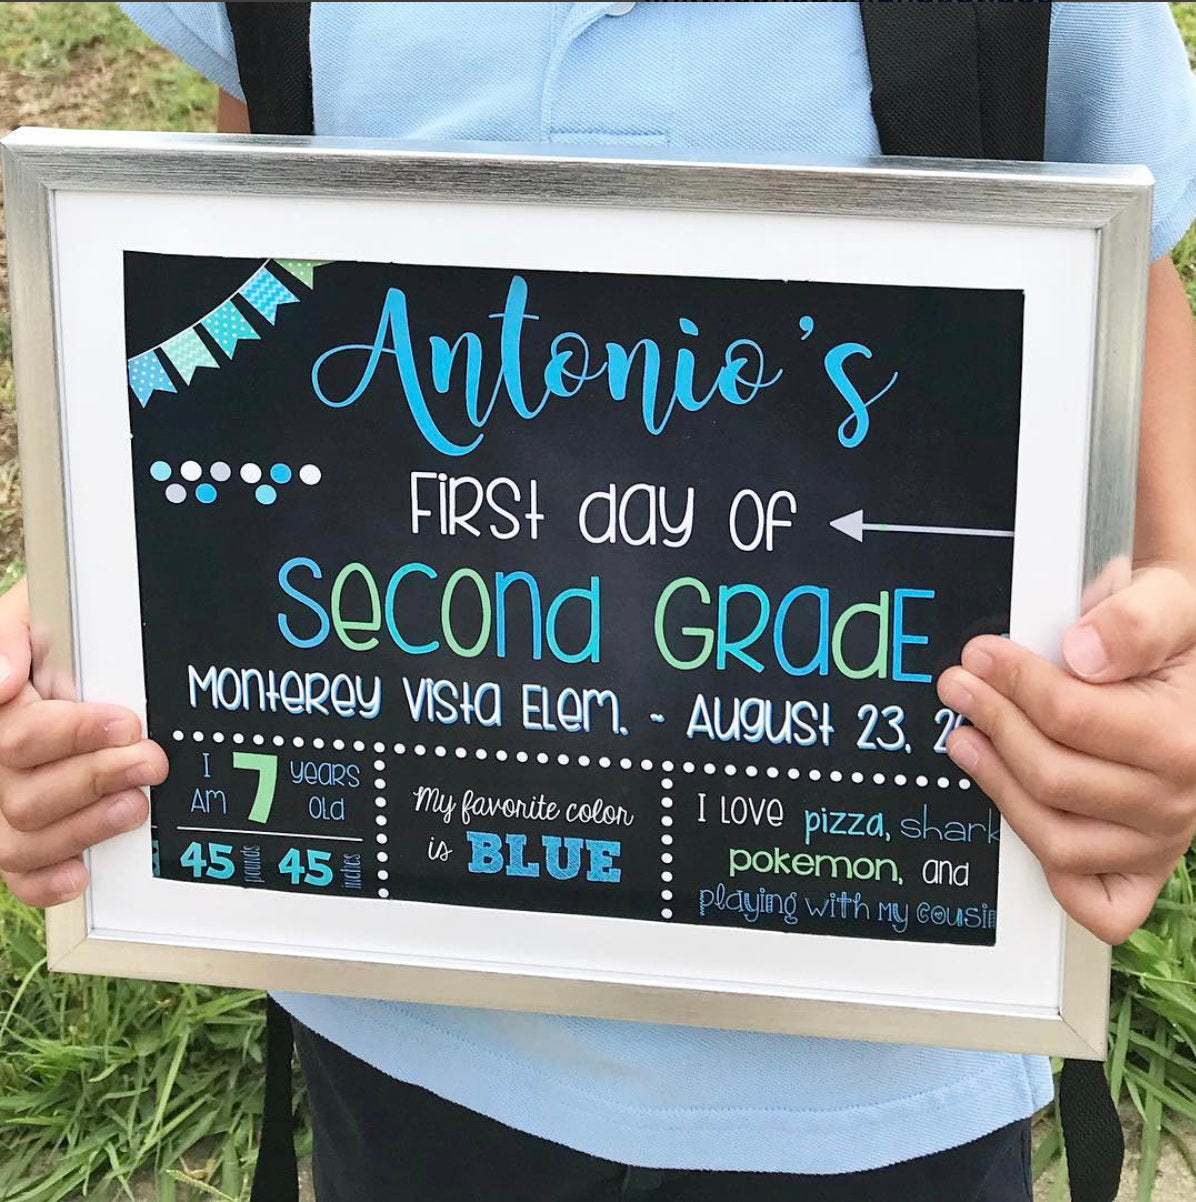 Antonio's
First day of
Second Grade
Monterey Vista Elem. - August 23, 2
I Am 7 years old
45 pounds 45 inches
My favorite color
is BLUE
I LOVE pizza, shark
pokemon, and
playing with my cousin